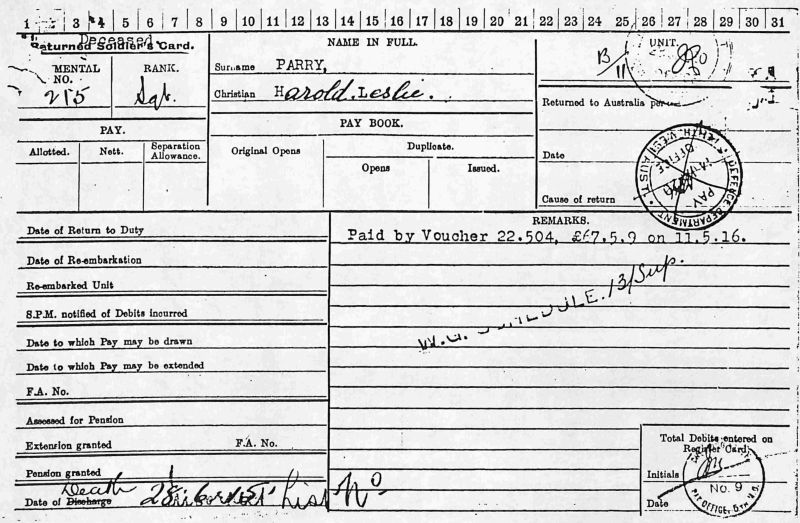 1 3 4 5 6 7 8 9 10 11 12 13 14 15 16 17 18 19 20 21 22 23 24 25 26 27 28 29 30 31
Deceased
Returned Soldier's Card.
MENTAL NO.
215
RANK.
Sgt.
NAME IN FULL.
Surname PARRY,
Christian Harold Leslie.
UNIT.
B/11
Returned to Australia per
Date
Cause of return
DEFENCE DEPARTMENT PERTH, WEST AUST.
PAY OFFICE
PAY.
Allotted. Nett. Separation Allowance.
PAY BOOK.
Original Opens
Duplicate.
Opens Issued.
REMARKS.
Paid by Voucher 22.504, £67.5.9 on 11.5.16.
W.G. SCHEDULE. 13/Sup.
Date of Return to Duty
Date of Re-embarkation
Re-embarked Unit
S.P.M. notified of Debits incurred
Date to which Pay may be drawn
Date to which Pay may be extended
F.A. No.
Assessed for Pension
Extension granted F.A. No.
Pension granted
Death
Date of Discharge 28 List No
Total Debits entered on
Register Card.
Initials
Date
No. 9
PAY OFFICE, 5TH M.D.